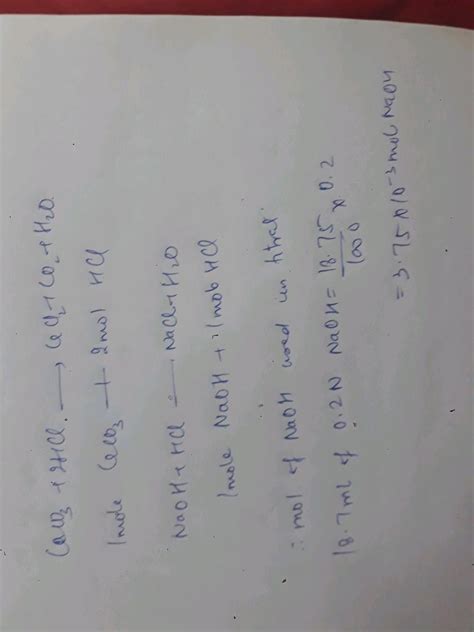 CaCO3 + 2HCl. ⟶ CaCl2 + CO2 + H2O
1 mole CaCO3 + 2 mol HCl
NaOH + HCl ⟶ NaCl + H2O
1 mole NaOH + 1 mol HCl
∴ mol of NaOH used in titrat.
18.7 ml of 0.2 N NaOH = 18.75/1000 × 0.2
= 3.75 × 10-3 mol NaOH